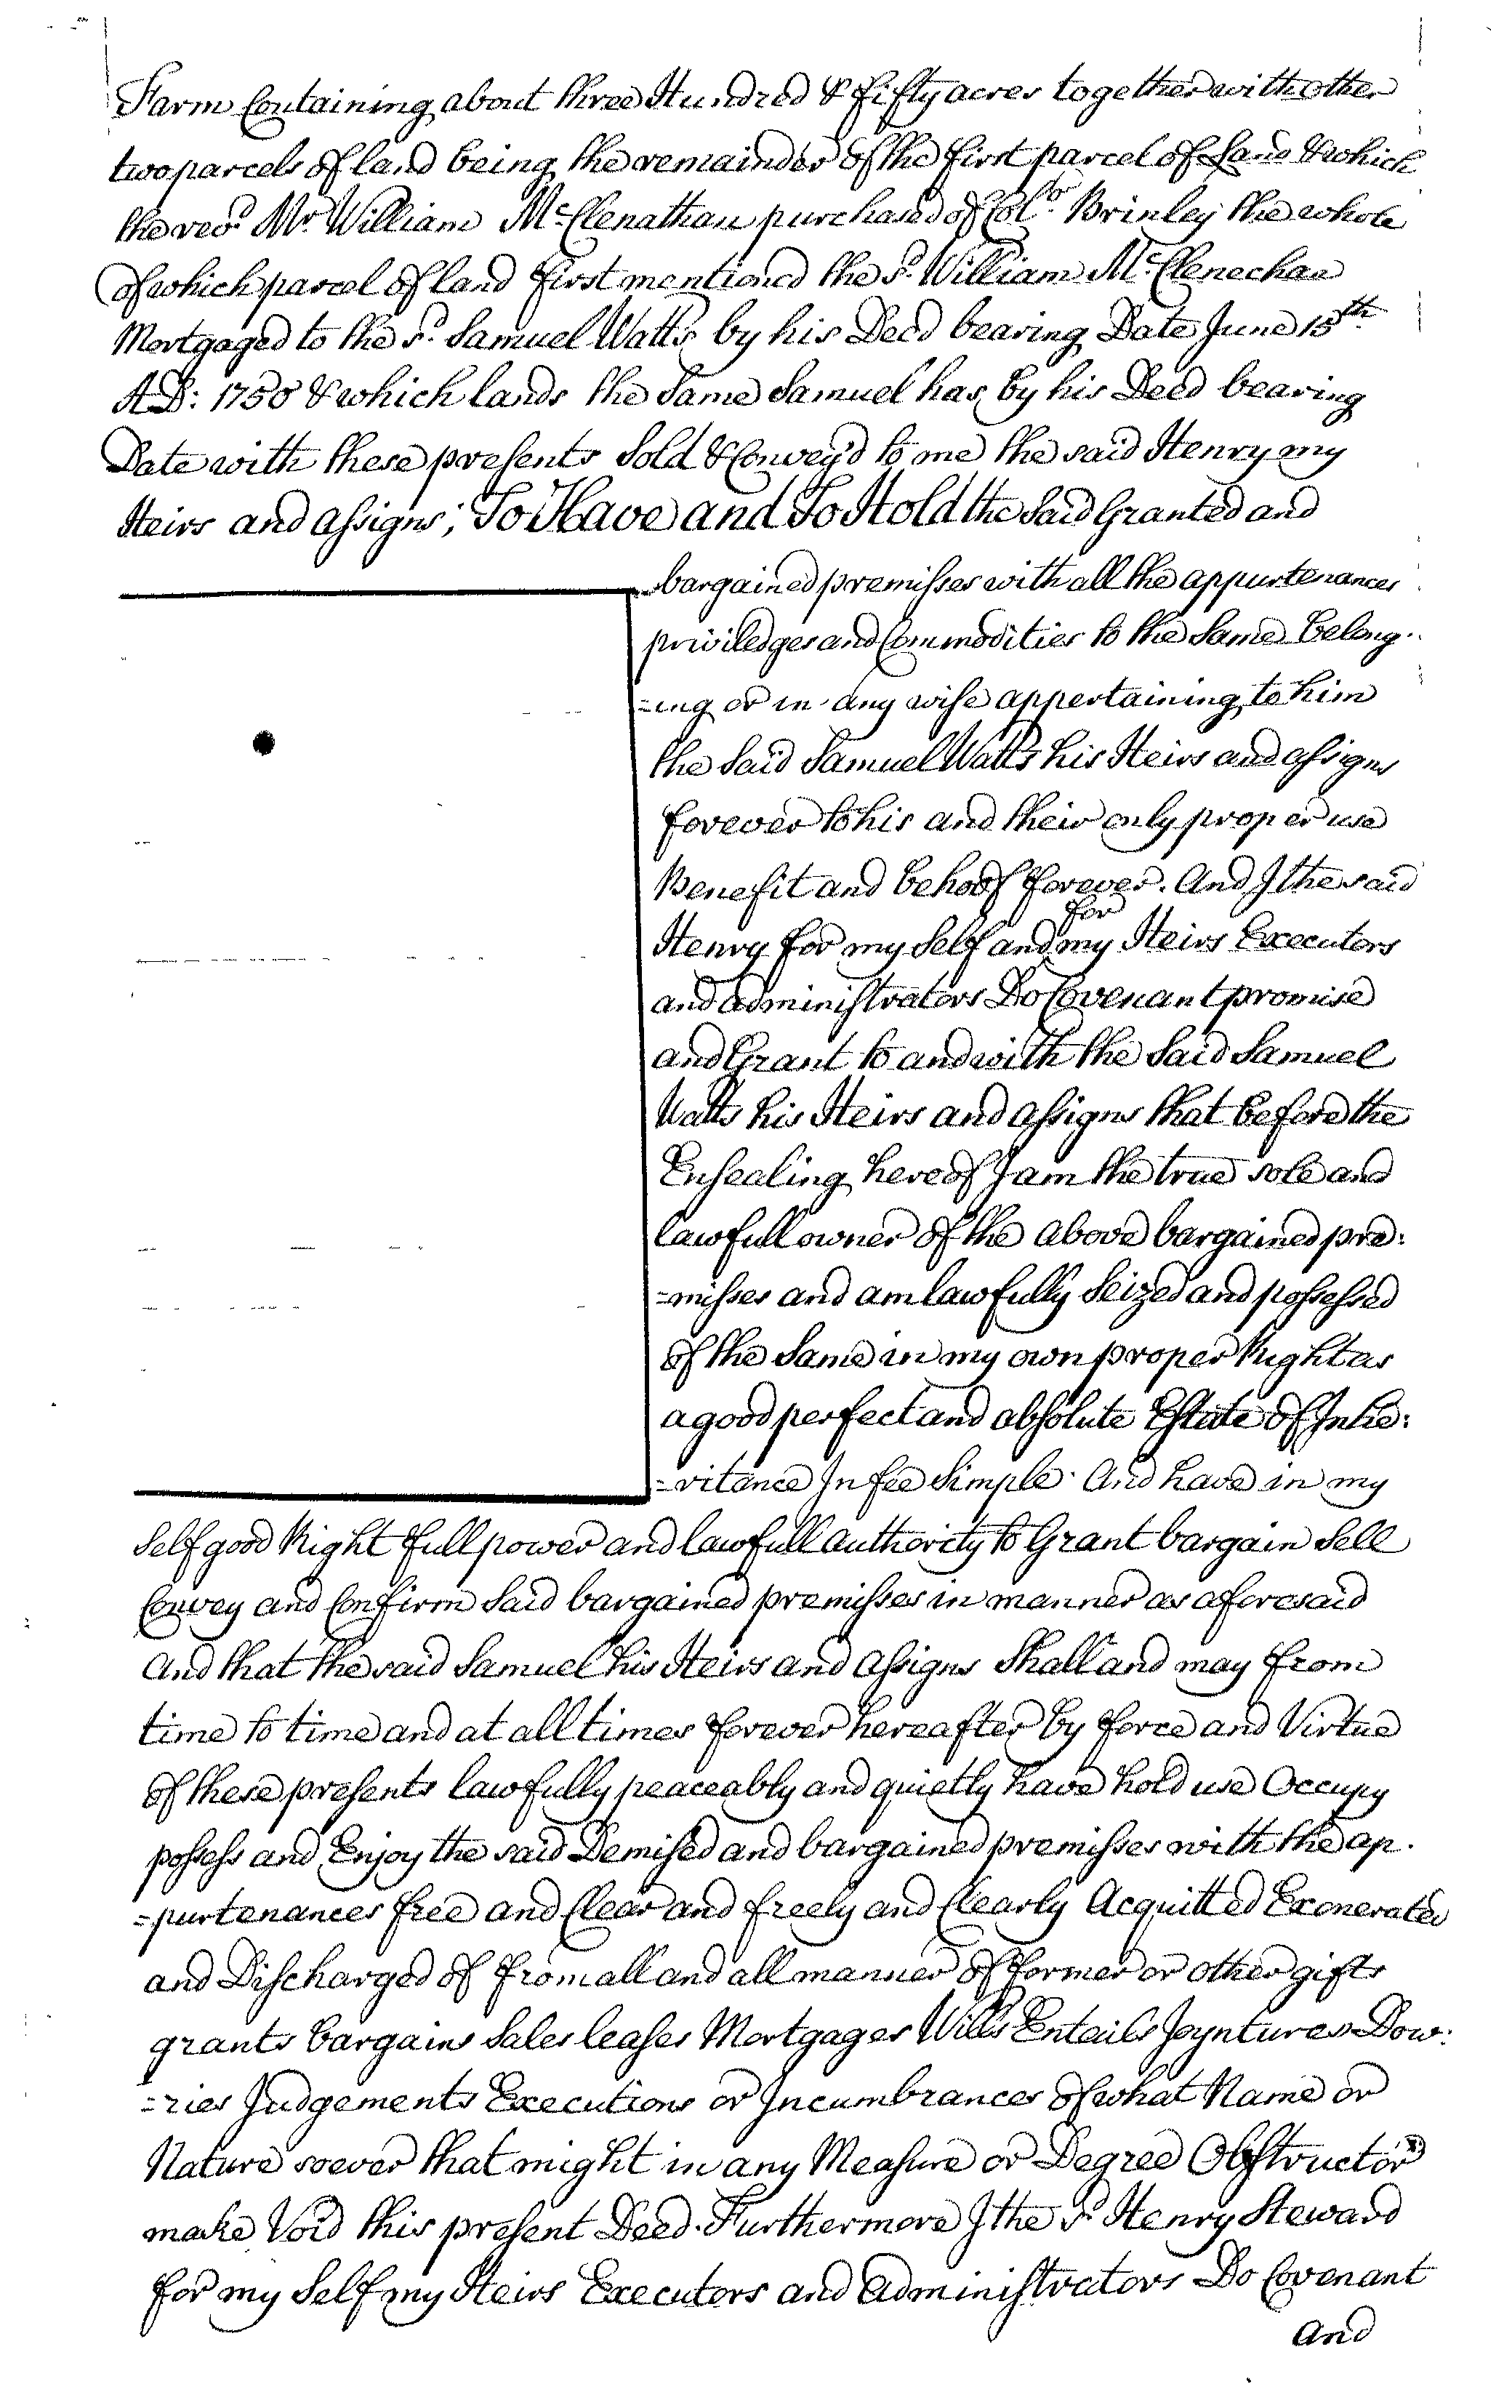 Farm Containing about three Hundred & Fifty acres together with other
two parcels of land being the remainder of the first parcel of Land & which
the revd. Mr. William McClenathan purchased of Colo. Brinley the whole
of which parcel of land first mentioned the sd. William McClenechan
Mortgaged to the sd. Samuel Watts by his Deed bearing Date June 15th
AD: 1750 & which lands the Same Samuel has by his Deed bearing
Date with these presents Sold & Convey'd to me the said Henry my
Heirs and assigns; To Have and To Hold the Said Granted and
bargained premisses with all the appurtenances
priviledges and Commodities to the Same belong-
=ing or in any wise appertaining to him
the Said Samuel Watts his Heirs and assigns
forever to his and their only proper use
Benefit and behoof forever. And I the said
Henry for my Self and for my Heirs Executors
and administrators Do Covenant promise
and Grant to and with the Said Samuel
Watts his Heirs and assigns that before the
Ensealing hereof I am the true sole and
lawfull owner of the above bargained pre:
=misses and am lawfully Seized and possessed
of the Same in my own proper Right as
a good perfect and absolute Estate of Inhe:
=ritance In fee Simple. And have in my
Self good Right full power and lawfull authority to Grant bargain Sell
Convey and Confirm Said bargained premisses in manner as aforesaid
And that the said Samuel his Heirs and assigns Shall and may from
time to time and at all times forever hereafter by force and Virtue
of these presents lawfully peaceably and quietly have hold use Occupy
possess and Enjoy the said Demised and bargained premisses with the ap.
=purtenances free and Clear and freely and Clearly Acquitted Exonerated
and Discharged of from all and all manner of former or other gifts
grants bargains Sales leases Mortgages Wills Entails Joyntures Dow:
=ries Judgements Executions or Incumbrances of what Name or
Nature soever that might in any Measure or Degree Obstruct or
make Void this present Deed. Furthermore I the sd. Henry Steward
for my Self my Heirs Executors and administrators Do Covenant
And